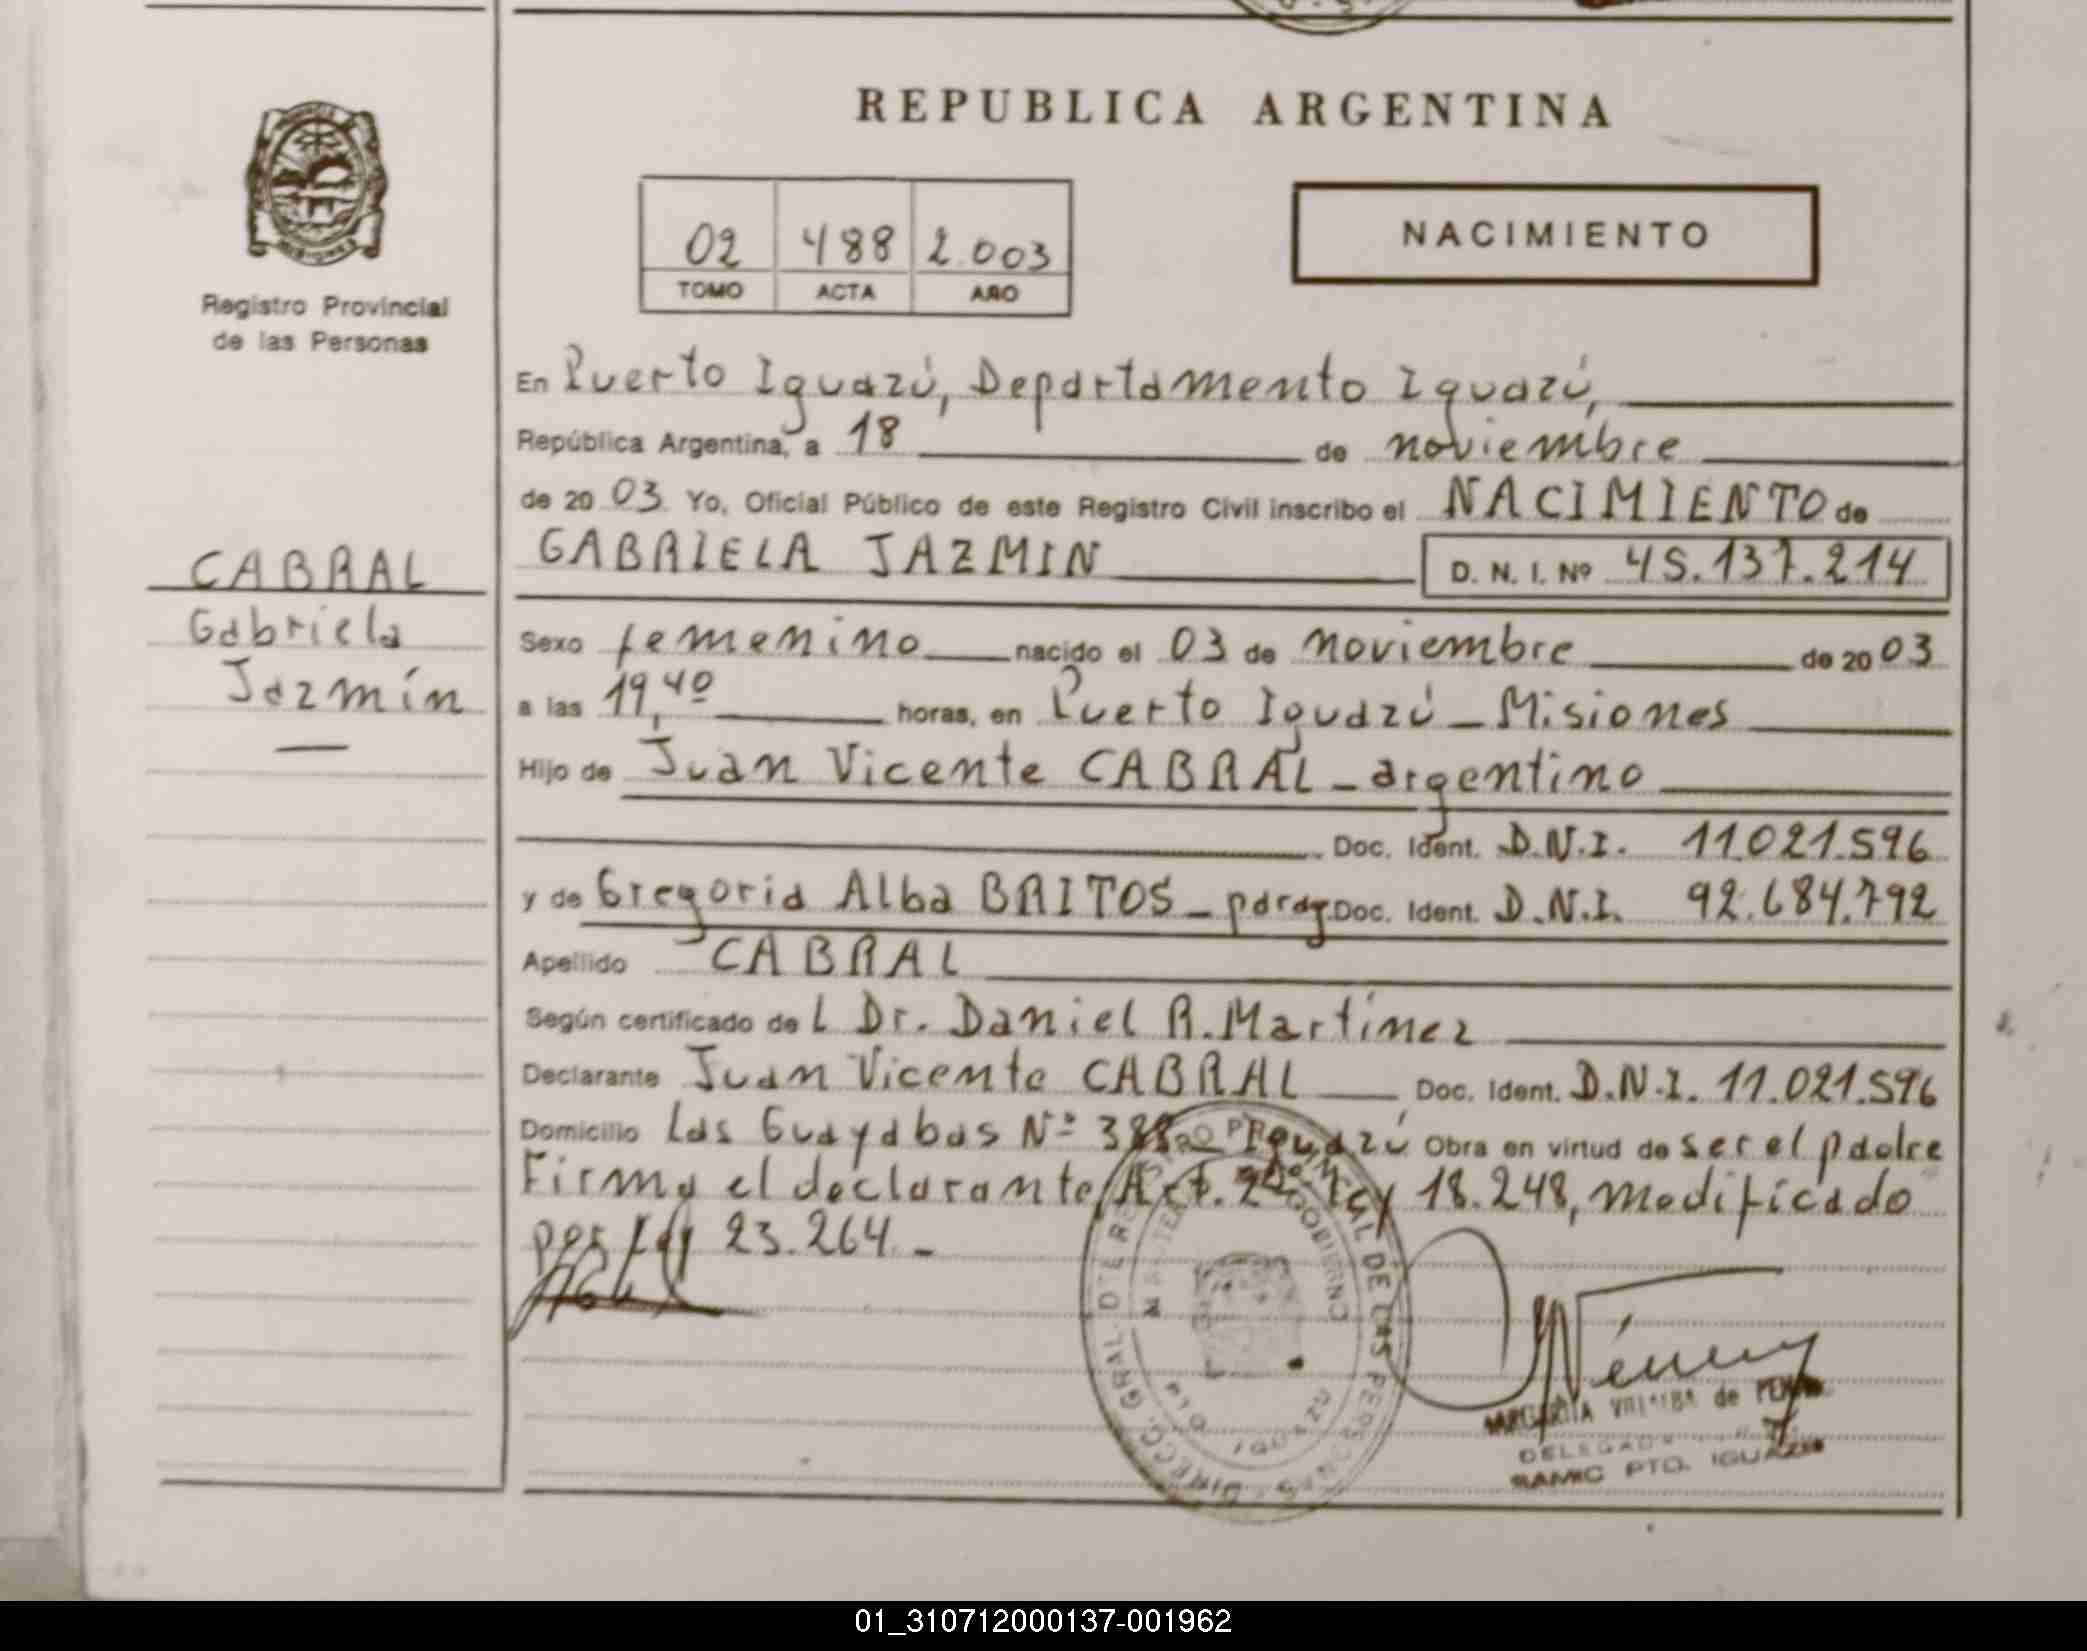 REPUBLICA ARGENTINA
02 488 2.003
TOMO ACTA AÑO
NACIMIENTO
Registro Provincial
de las Personas
En Puerto Iguazú, Departamento Iguazú,
República Argentina, a 18 de noviembre
de 20 03 Yo, Oficial Público de este Registro Civil inscribo el NACIMIENTO de
GABRIELA JAZMIN D. N. I. Nº 45.137.214
CABRAL
Gabriela
Jazmín
Sexo femenino nacido el 03 de noviembre de 20 03
a las 19,40 horas, en Puerto Iguazú - Misiones
Hijo de Juan Vicente CABRAL - argentino
Doc. Ident. D.N.I. 11.021.596
y de Gregoria Alba BRITOS - parag. Doc. Ident. D.N.I. 92.684.792
Apellido CABRAL
Según certificado de L Dr. Daniel R. Martínez
Declarante Juan Vicente CABRAL Doc. Ident. D.N.I. 11.021.596
Domicilio Las Guayabas Nº Iguazú Obra en virtud de ser el padre
Firma el declarante Art. Ley 18.248, modificado
por Ley 23.264.-
DIRECC. GRAL. DEL REGISTRO PROVINCIAL DE LAS PERSONAS
GOBIERNO
IGUAZU
MARGARITA de
DELEGADA
SAMIC PTO. IGUAZU
01_310712000137-001962